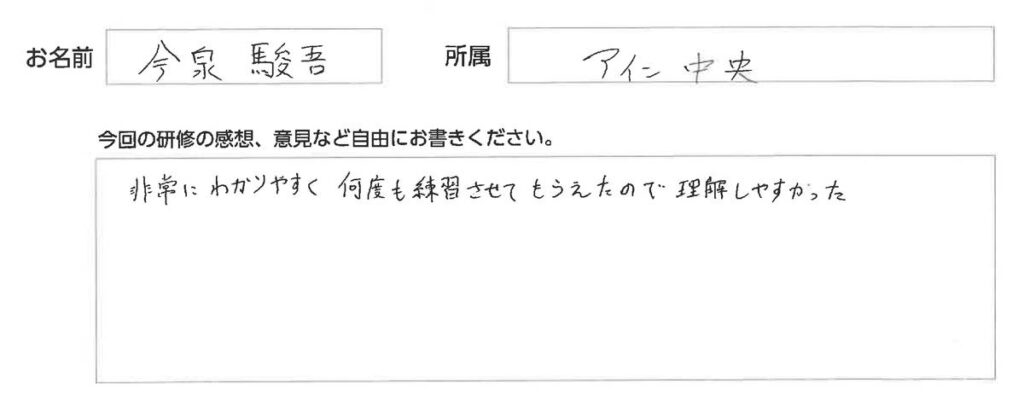 お名前 今泉 駿吾 所属 アイン 中央
今回の研修の感想、意見など自由にお書きください。
非常に わかりやすく 何度も練習させて もらえたので 理解しやすかった